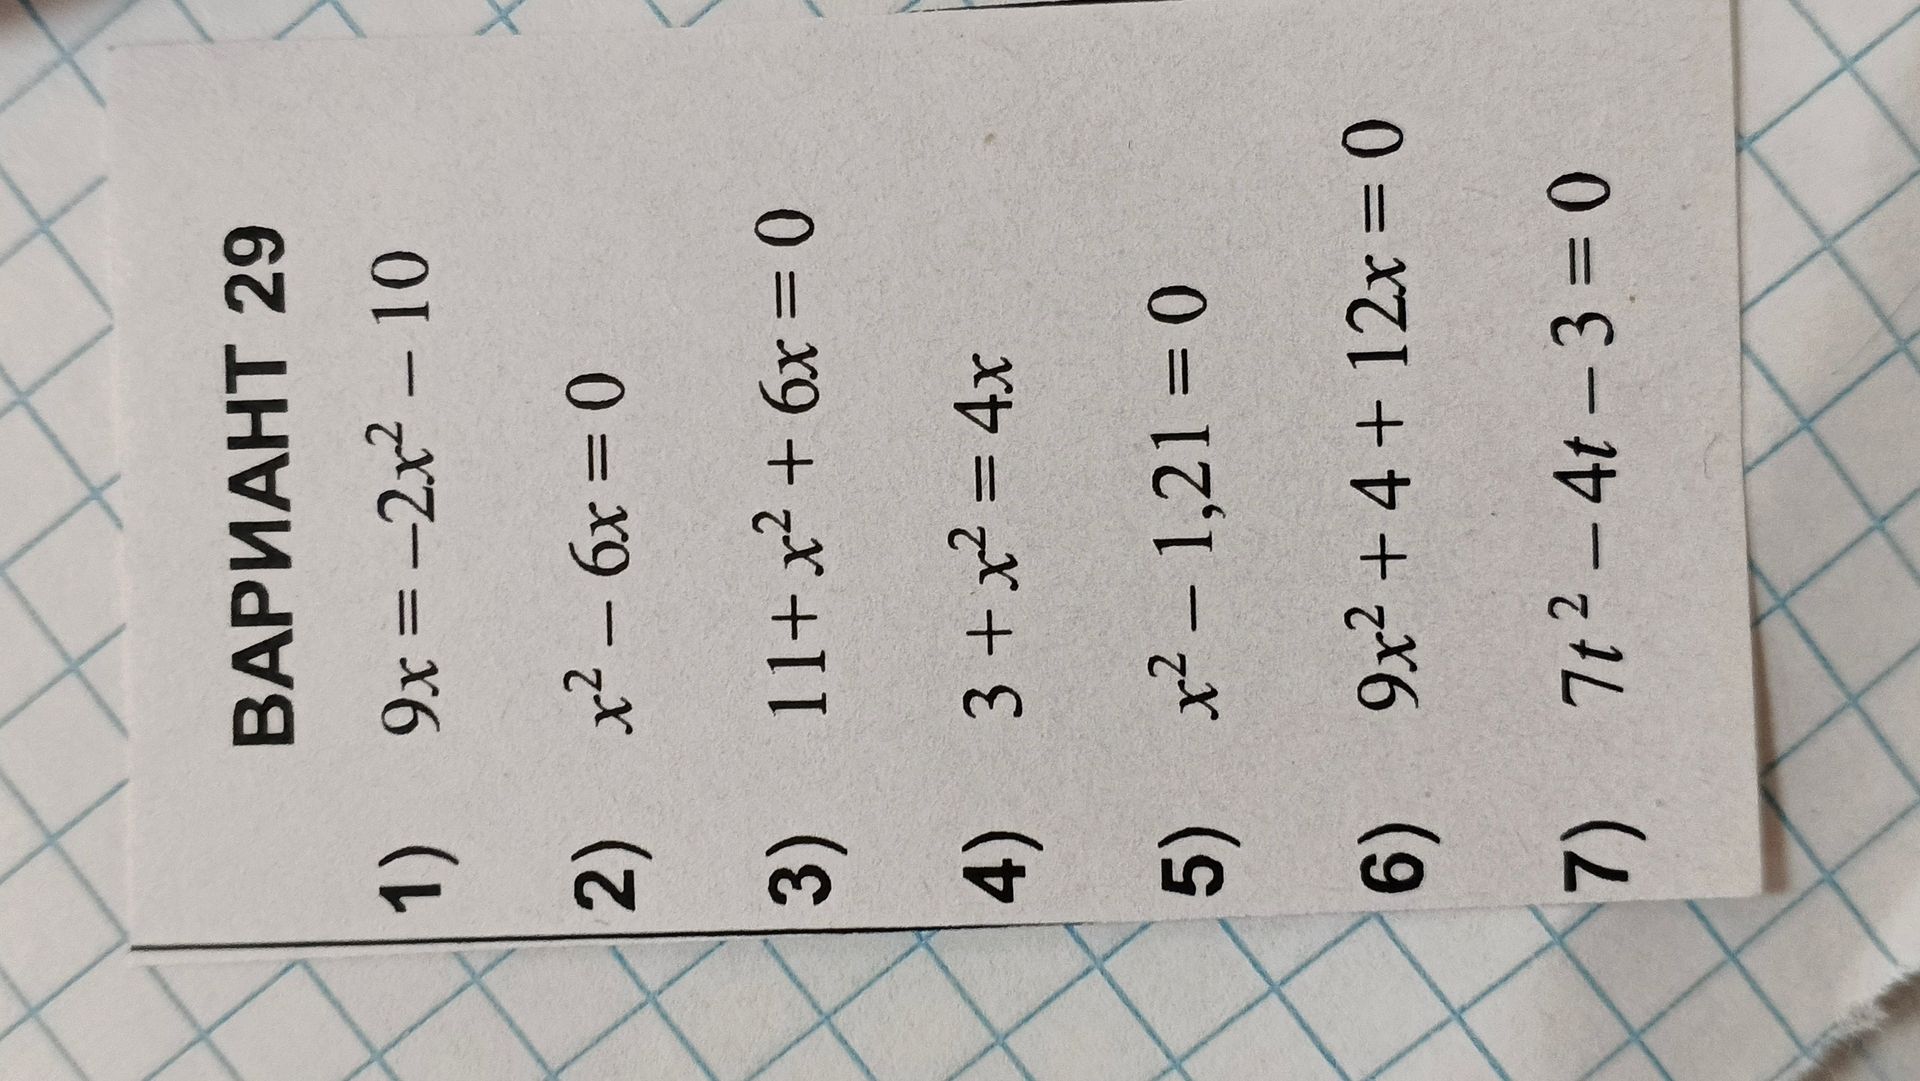 ВАРИАНТ 29
1) 9x = −2x² − 10
2) x² − 6x = 0
3) 11 + x² + 6x = 0
4) 3 + x² = 4x
5) x² − 1,21 = 0
6) 9x² + 4 + 12x = 0
7) 7t² − 4t − 3 = 0